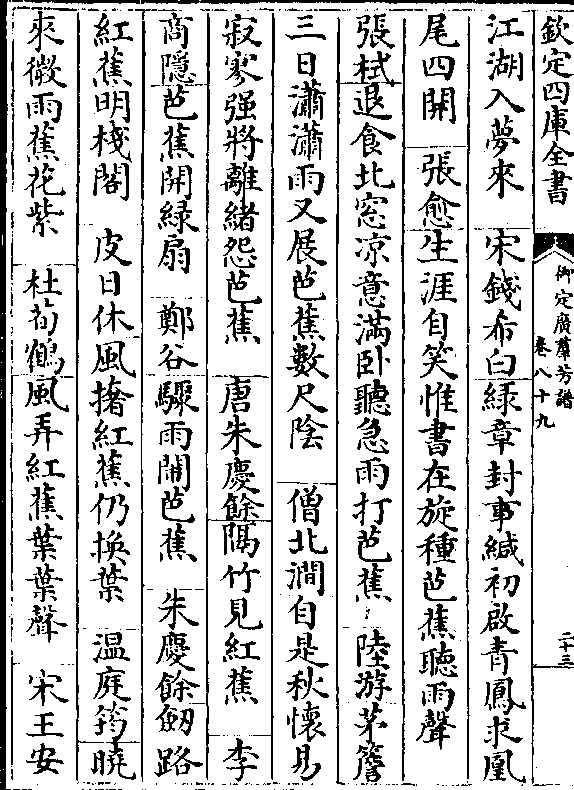 欽定四庫全書
御定廣羣芳譜
卷八十九
二十三
江湖入夢來　宋錢希白綠章封事緘初啟青鳳求凰
尾四開　張愈生涯自笑惟書在旋種芭蕉聽雨聲
張栻退食北窓凉意滿卧聽急雨打芭蕉　陸游茅簷
三日瀟瀟雨又展芭蕉數尺陰　僧北澗自是秋懷易
寂寥强將離緒怨芭蕉　唐朱慶餘隔竹見紅蕉　李
商隱芭蕉開綠扇　鄭谷驟雨鬧芭蕉　朱慶餘劒路
紅蕉明棧閣　皮日休風撦紅蕉仍換葉　温庭筠曉
來微雨蕉花紫　杜荀鶴風弄紅蕉葉葉聲　宋王安